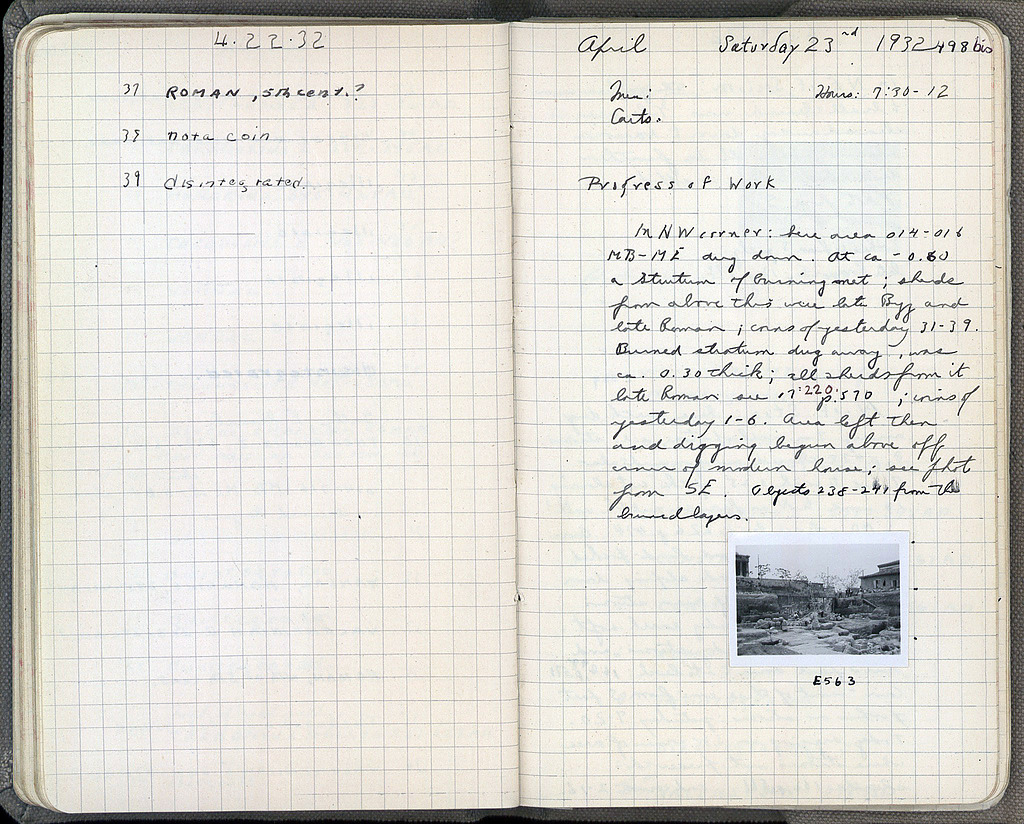 4.22.32
37 ROMAN, 5th cent.?
38 not a coin
39 disintegrated.
April Saturday 23rd 1932 498 bis
Men: Hours: 7:30-12
Carts.
Progress of Work
In NW corner: here area 014-016
MB-ME dug down. At ca -0.60
a stratum of burning met; sherds
from above this were late Byz and
late Roman; coins of yesterday 31-39.
Burned stratum dug away, was
ca. 0.30 thick; all sherds from it
late Roman see p. 570; coins of
yesterday 1-6. Area left then
and digging begun above off
corner of modern house; see phot
from SE. Objects 238-241 from the
burned layers.
E563